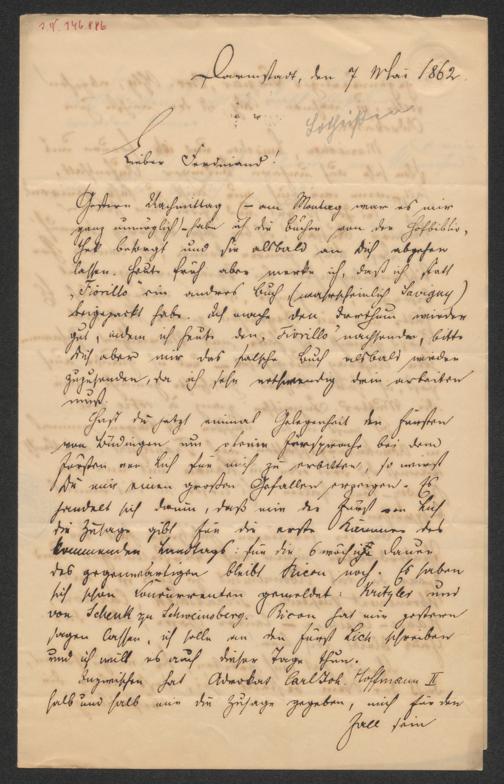 J.N. 146.886
Darmstadt, den 7 Mai 1862.
Lieber Ferdinand!
Gestern Nachmittag (- am Montag war es mir
ganz unmöglich) - habe ich die Bücher von der Hofbiblio-
thek besorgt und sie alsbald an Dich abgehen
lassen. Heute früh aber merke ich, daß ich statt
"Fiorillo" ein anderes Buch (wahrscheinlich Savigny)
beigepackt habe. Ich mache den Irrthum wieder
gut, indem ich heute den "Fiorillo" nachsende, bitte
Dich aber mir das falsche Buch alsbald wieder
zuzusenden, da ich sehr nothwendig darin arbeiten
muß.
Hast Du jetzt einmal Gelegenheit den Fürsten
von Büdingen um seine Fürsprache bei dem
Fürsten von Lich für mich zu erbitten, so wirst
Du mir einen großen Gefallen erzeigen. Es
handelt sich darum, daß mir der Fürst von Lich
die Zusage gibt für die erste Kammer des
kommenden Landtags: für die 6 wöchige Dauer
des gegenwärtigen bleibt Ricon noch. Es haben
sich schon Concurrenten gemeldet: Kritzler und
von Schenk zu Schweinsberg. Ricon hat mir gestern
sagen lassen, ich solle an den Fürst Lich schreiben
und ich will es auch dieser Tage thun.
Inzwischen hat Advokat Carl Joh. Hoffmann II
halb und halb mir die Zusage gegeben, mich für den
Fall sein